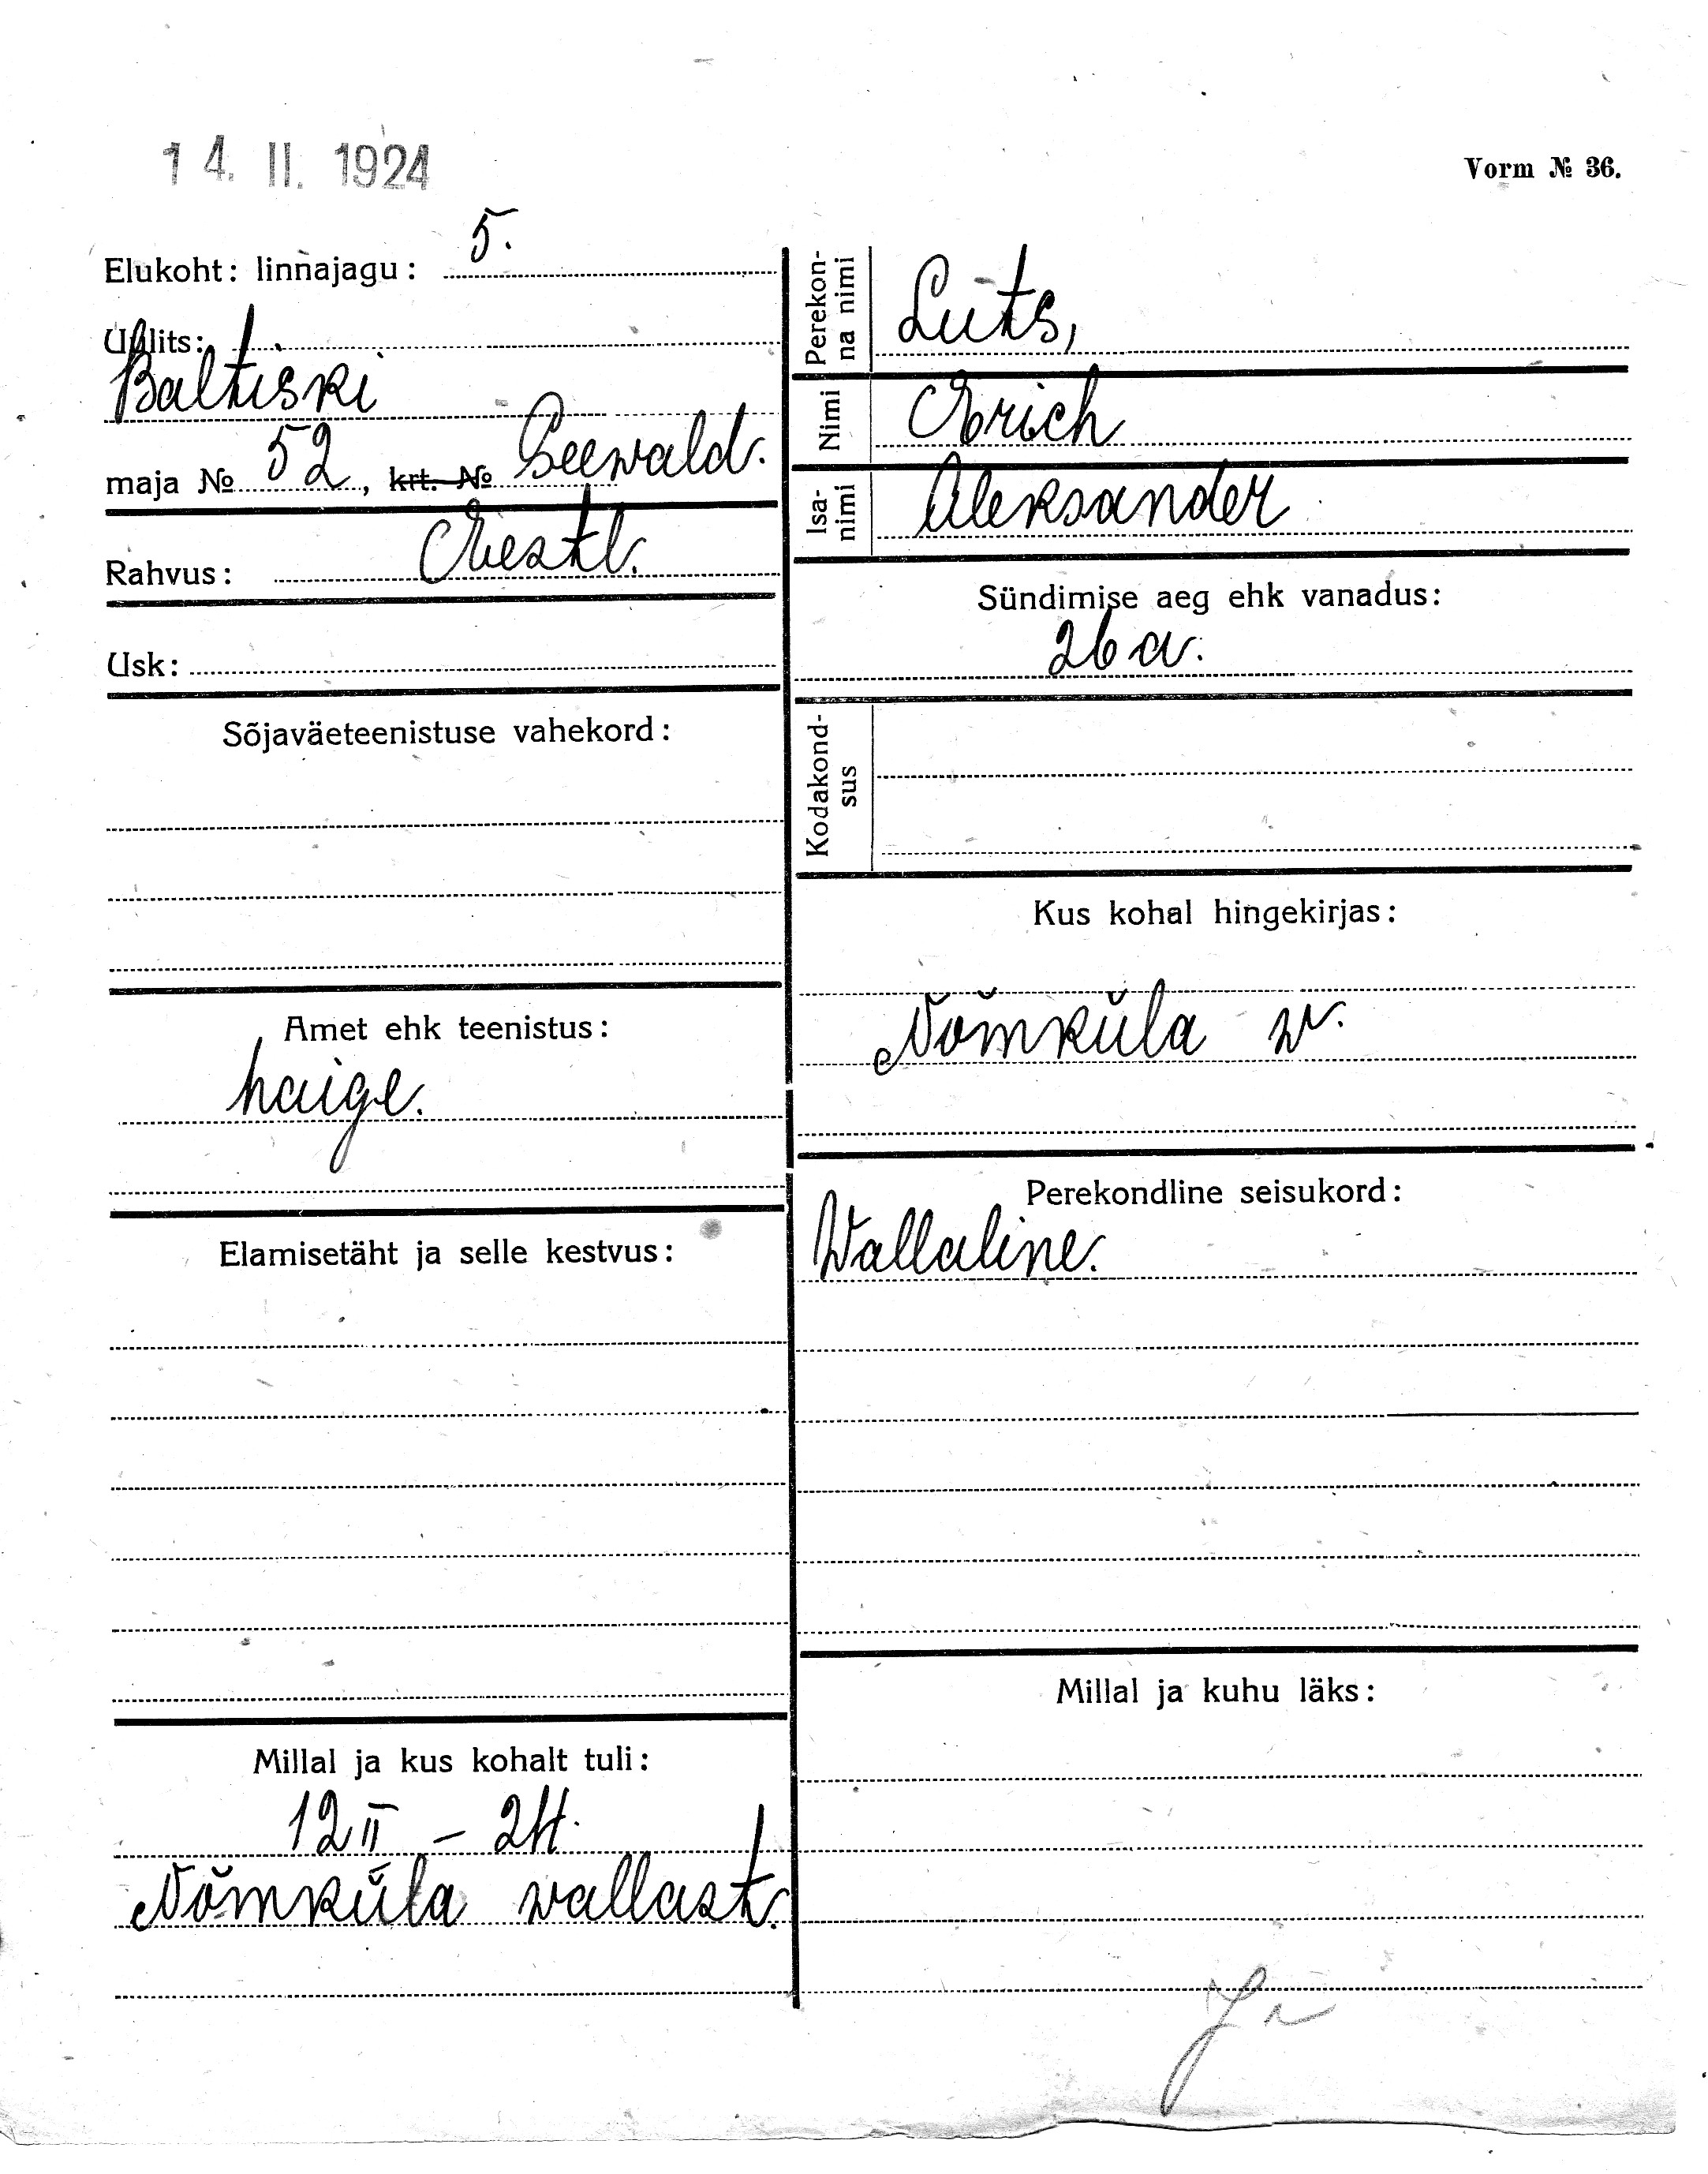 14. II. 1924
Vorm № 36.
Elukoht: linnajagu: 5.
Uulits:
Baltiski
maja № 52, krt. № Seewald.
Rahvus: Eestl.
Usk:
Sõjaväeteenistuse vahekord:
Amet ehk teenistus:
haige.
Elamisetäht ja selle kestvus:
Millal ja kus kohalt tuli:
12 II – 24.
Nõmküla vallast.
Perekon-
na nimi
Luts,
Nimi
Erich
Isa-
nimi
Aleksander
Sündimise aeg ehk vanadus:
26 a.
Kodakond-
sus
Kus kohal hingekirjas:
Nõmküla v.
Perekondline seisukord:
Wallaline.
Millal ja kuhu läks: